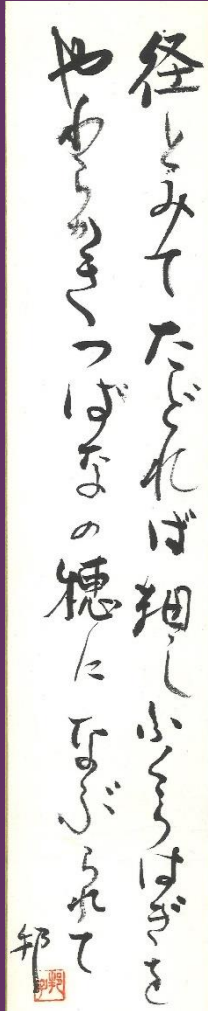 径とみてたどれば細しふくらはぎを
やわらかきつばなの穂になぶられて
邦